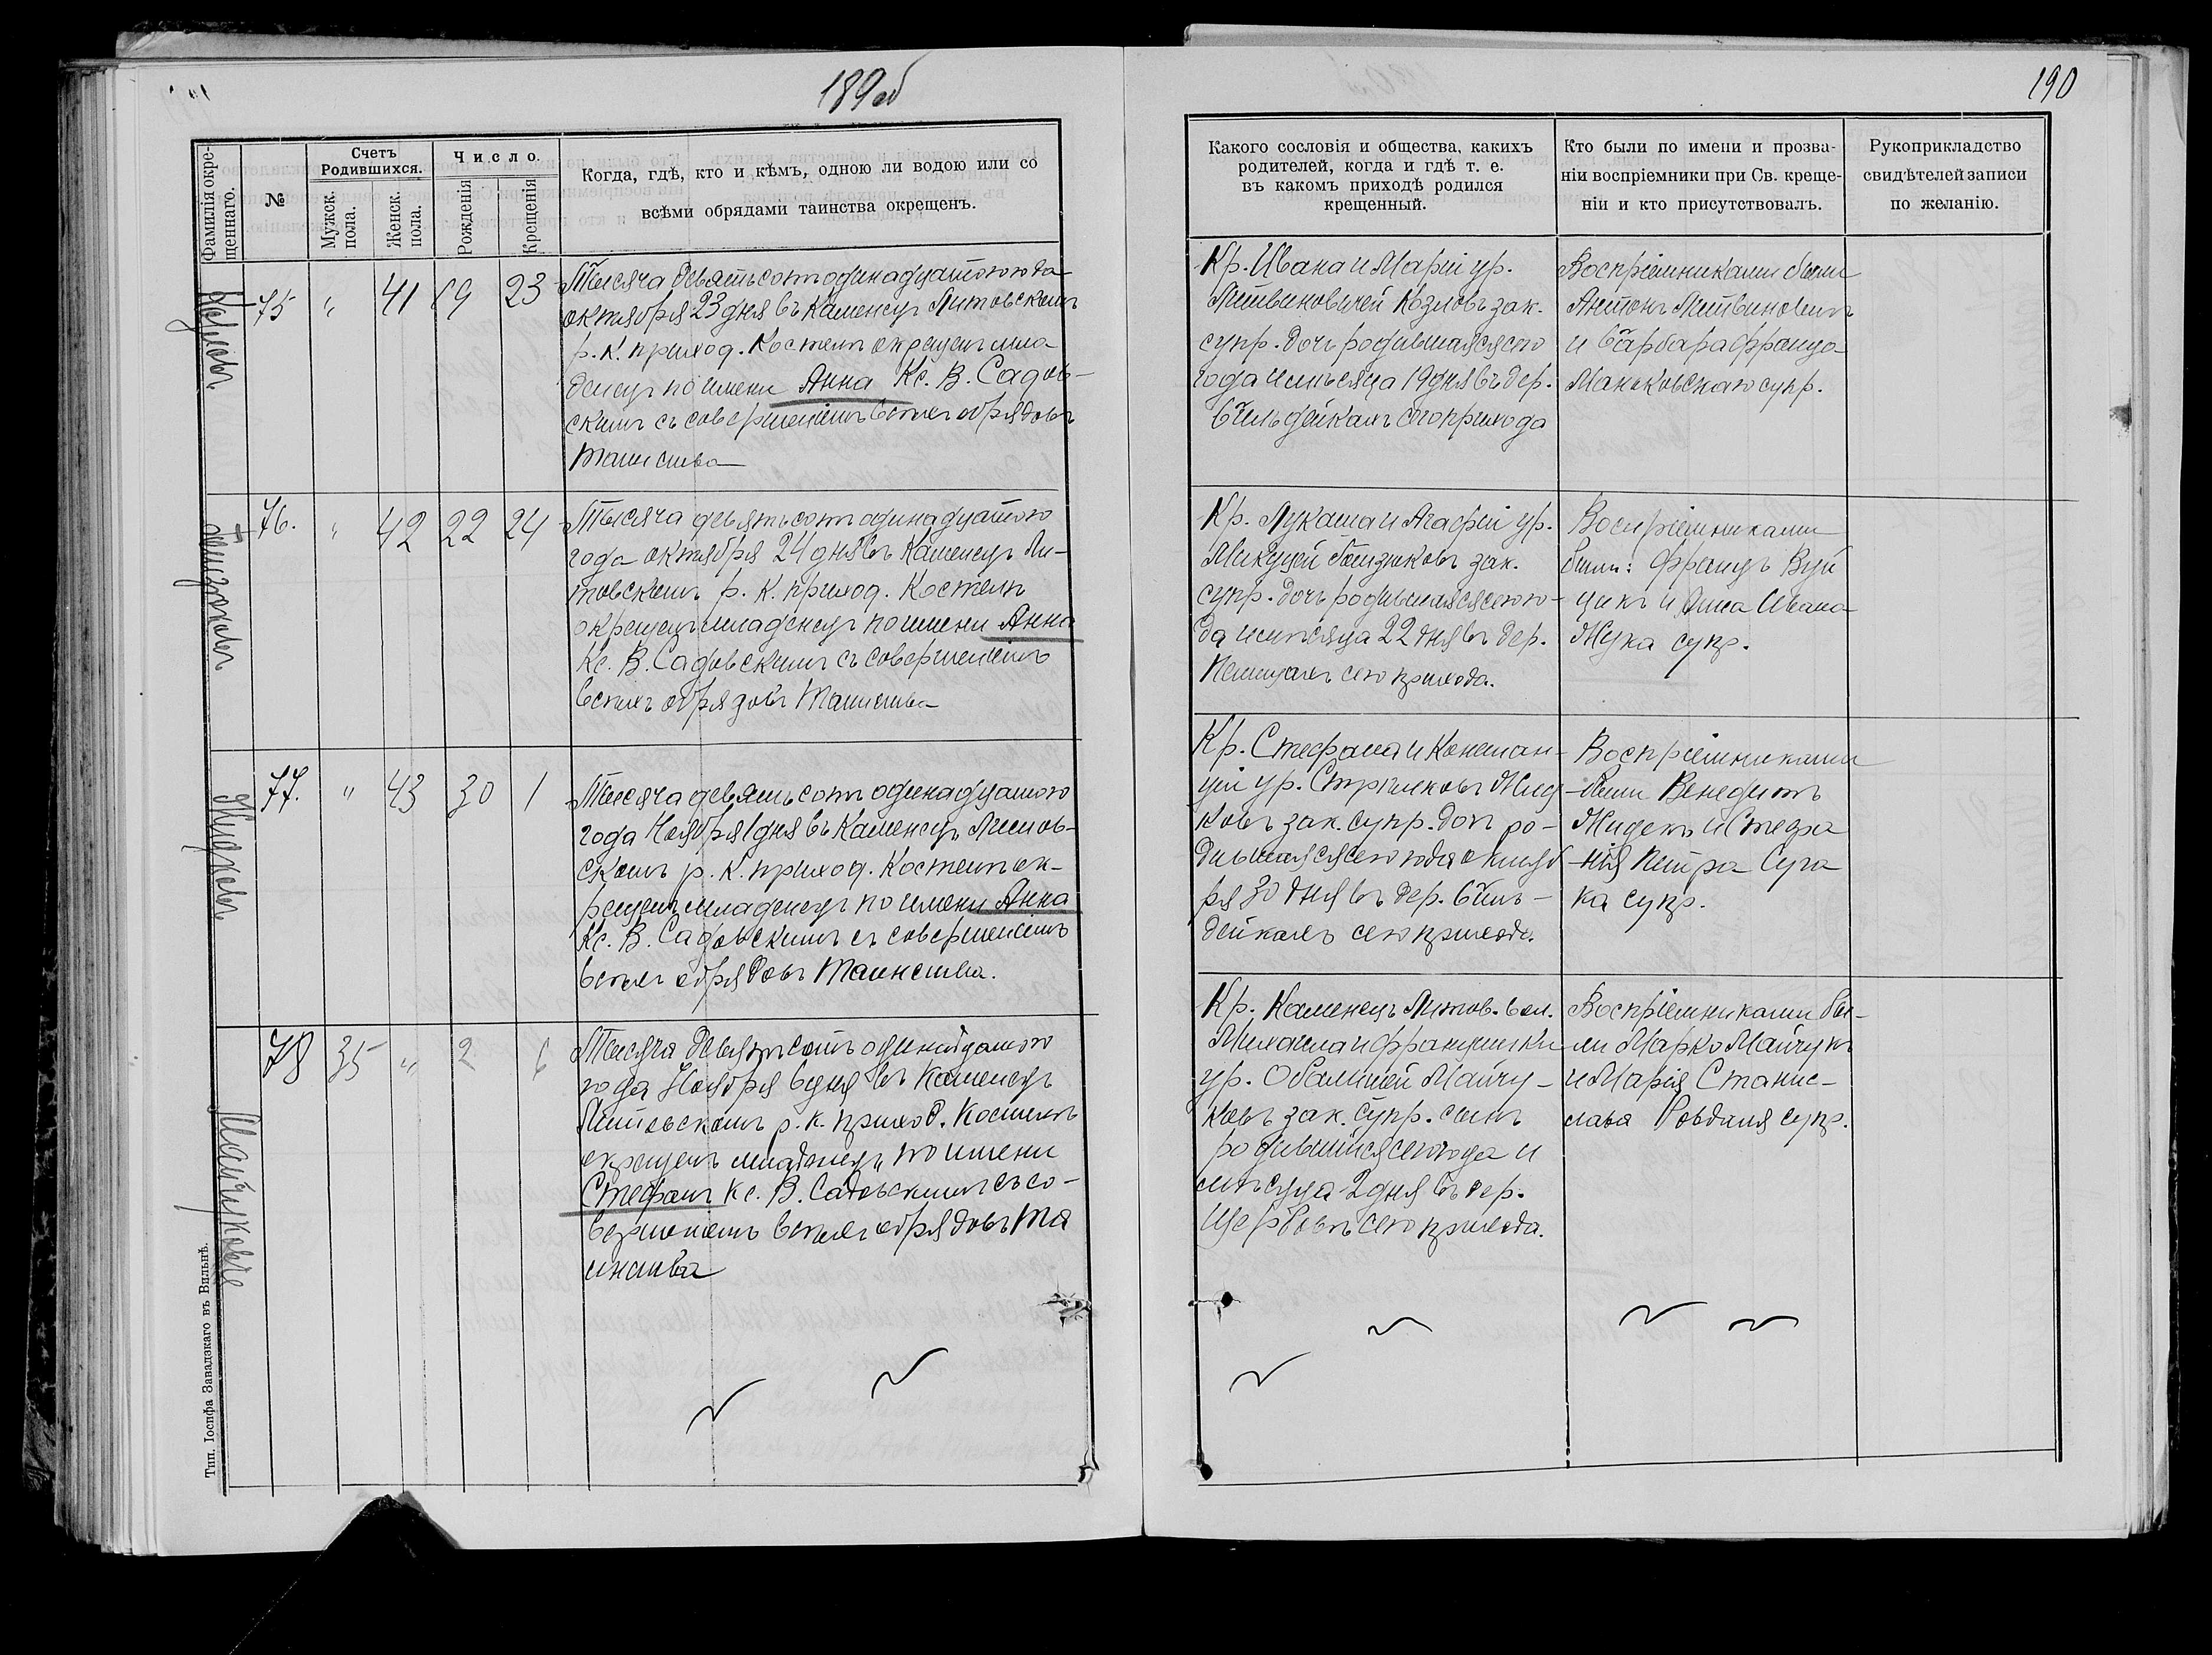 189об
190
Фамилія окре-
щеннаго.
№
Счетъ
Родившихся.
Мужск.
пола.
Женск.
пола.
Число.
Рожденія
Крещенія
Когда, гдѣ, кто и кѣмъ, одною ли водою или со
всѣми обрядами таинства окрещенъ.
Козловъ
75 " 41 19 23
Тысяча девятьсотъ одинадцатого года
октября 23 дня въ Каменецъ Литовскомъ
р. К. приход. Костелѣ окрещенъ мла-
денецъ по имени Анна Кс. В. Садов-
скимъ съ совершеніемъ всѣхъ обрядовъ
таинства
76. " 42 22 24
Тысяча девятьсотъ одинадцатого
года октября 24 дня въ Каменецъ Ли-
товскомъ р. К. приход. Костелѣ
окрещенъ младенецъ по имени Анна
Кс. В. Садовскимъ съ совершеніемъ
всѣхъ обрядовъ таинства
Жидковъ
77. " 43 30 1
Тысяча девятьсотъ одинадцатого
года Ноября 1 дня въ Каменецъ Литов-
скомъ р. К. приход. Костелѣ ок-
рещенъ младенецъ по имени Анна
Кс. В. Садовскимъ съ совершеніемъ
всѣхъ обрядовъ таинства.
78 35 " 2 6
Тысяча девятьсотъ одинадцатого
года Ноября 6 дня въ Каменецъ
Литовскомъ р. к. приход. Костелѣ
окрещенъ младенецъ по имени
Стефанъ Кс. В. Садовскимъ съ со-
вершенемъ всѣхъ обрядовъ та
инства
Тип. Іосифа Завадзкаго въ Вильнѣ.
Какого сословія и общества, какихъ
родителей, когда и гдѣ т. е.
въ какомъ приходѣ родился
крещенный.
Кто были по имени и прозва-
ніи воспріемники при Св. креще-
ніи и кто присутствовалъ.
Рукоприкладство
свидѣтелей записи
по желанію.
Кр. Ивана и Маріи ур.
Литвиновичей Козловъ зак.
супр. дочь родившаяся сего
года и мѣсяца 19 дня въ дер.
сего прихода
Воспріемниками были
Антонъ Литвиновичъ
и Варбара Франца
супр.
Кр. Лукаша и Агафіи ур.
зак.
супр. дочь родившаяся сего го-
да и мѣсяца 22 дня въ дер.
сего прихода.
Воспріемниками
были: Францъ Вуй
цикъ и Анна Ивана
Жука супр.
Кр. Стефана и Констан-
ціи ур. Жид-
ковъ зак. супр. дочь ро-
дившаяся сего года октяб
ря 30 дня въ дер.
сего прихода.
Воспріемниками
были Венедиктъ
Жидекъ и Стефа
нія Петра Суга
ка супр.
Кр. Каменецъ Литов. вол.
Михаила и Францишки
ур. Майчу-
ковъ зак. супр. сынъ
родившійся сего года и
мѣсяца 2 дня въ дер.
сего прихода.
Воспріемниками бы-
ли Марко Майчукъ
и Марія Станис-
лава супр.